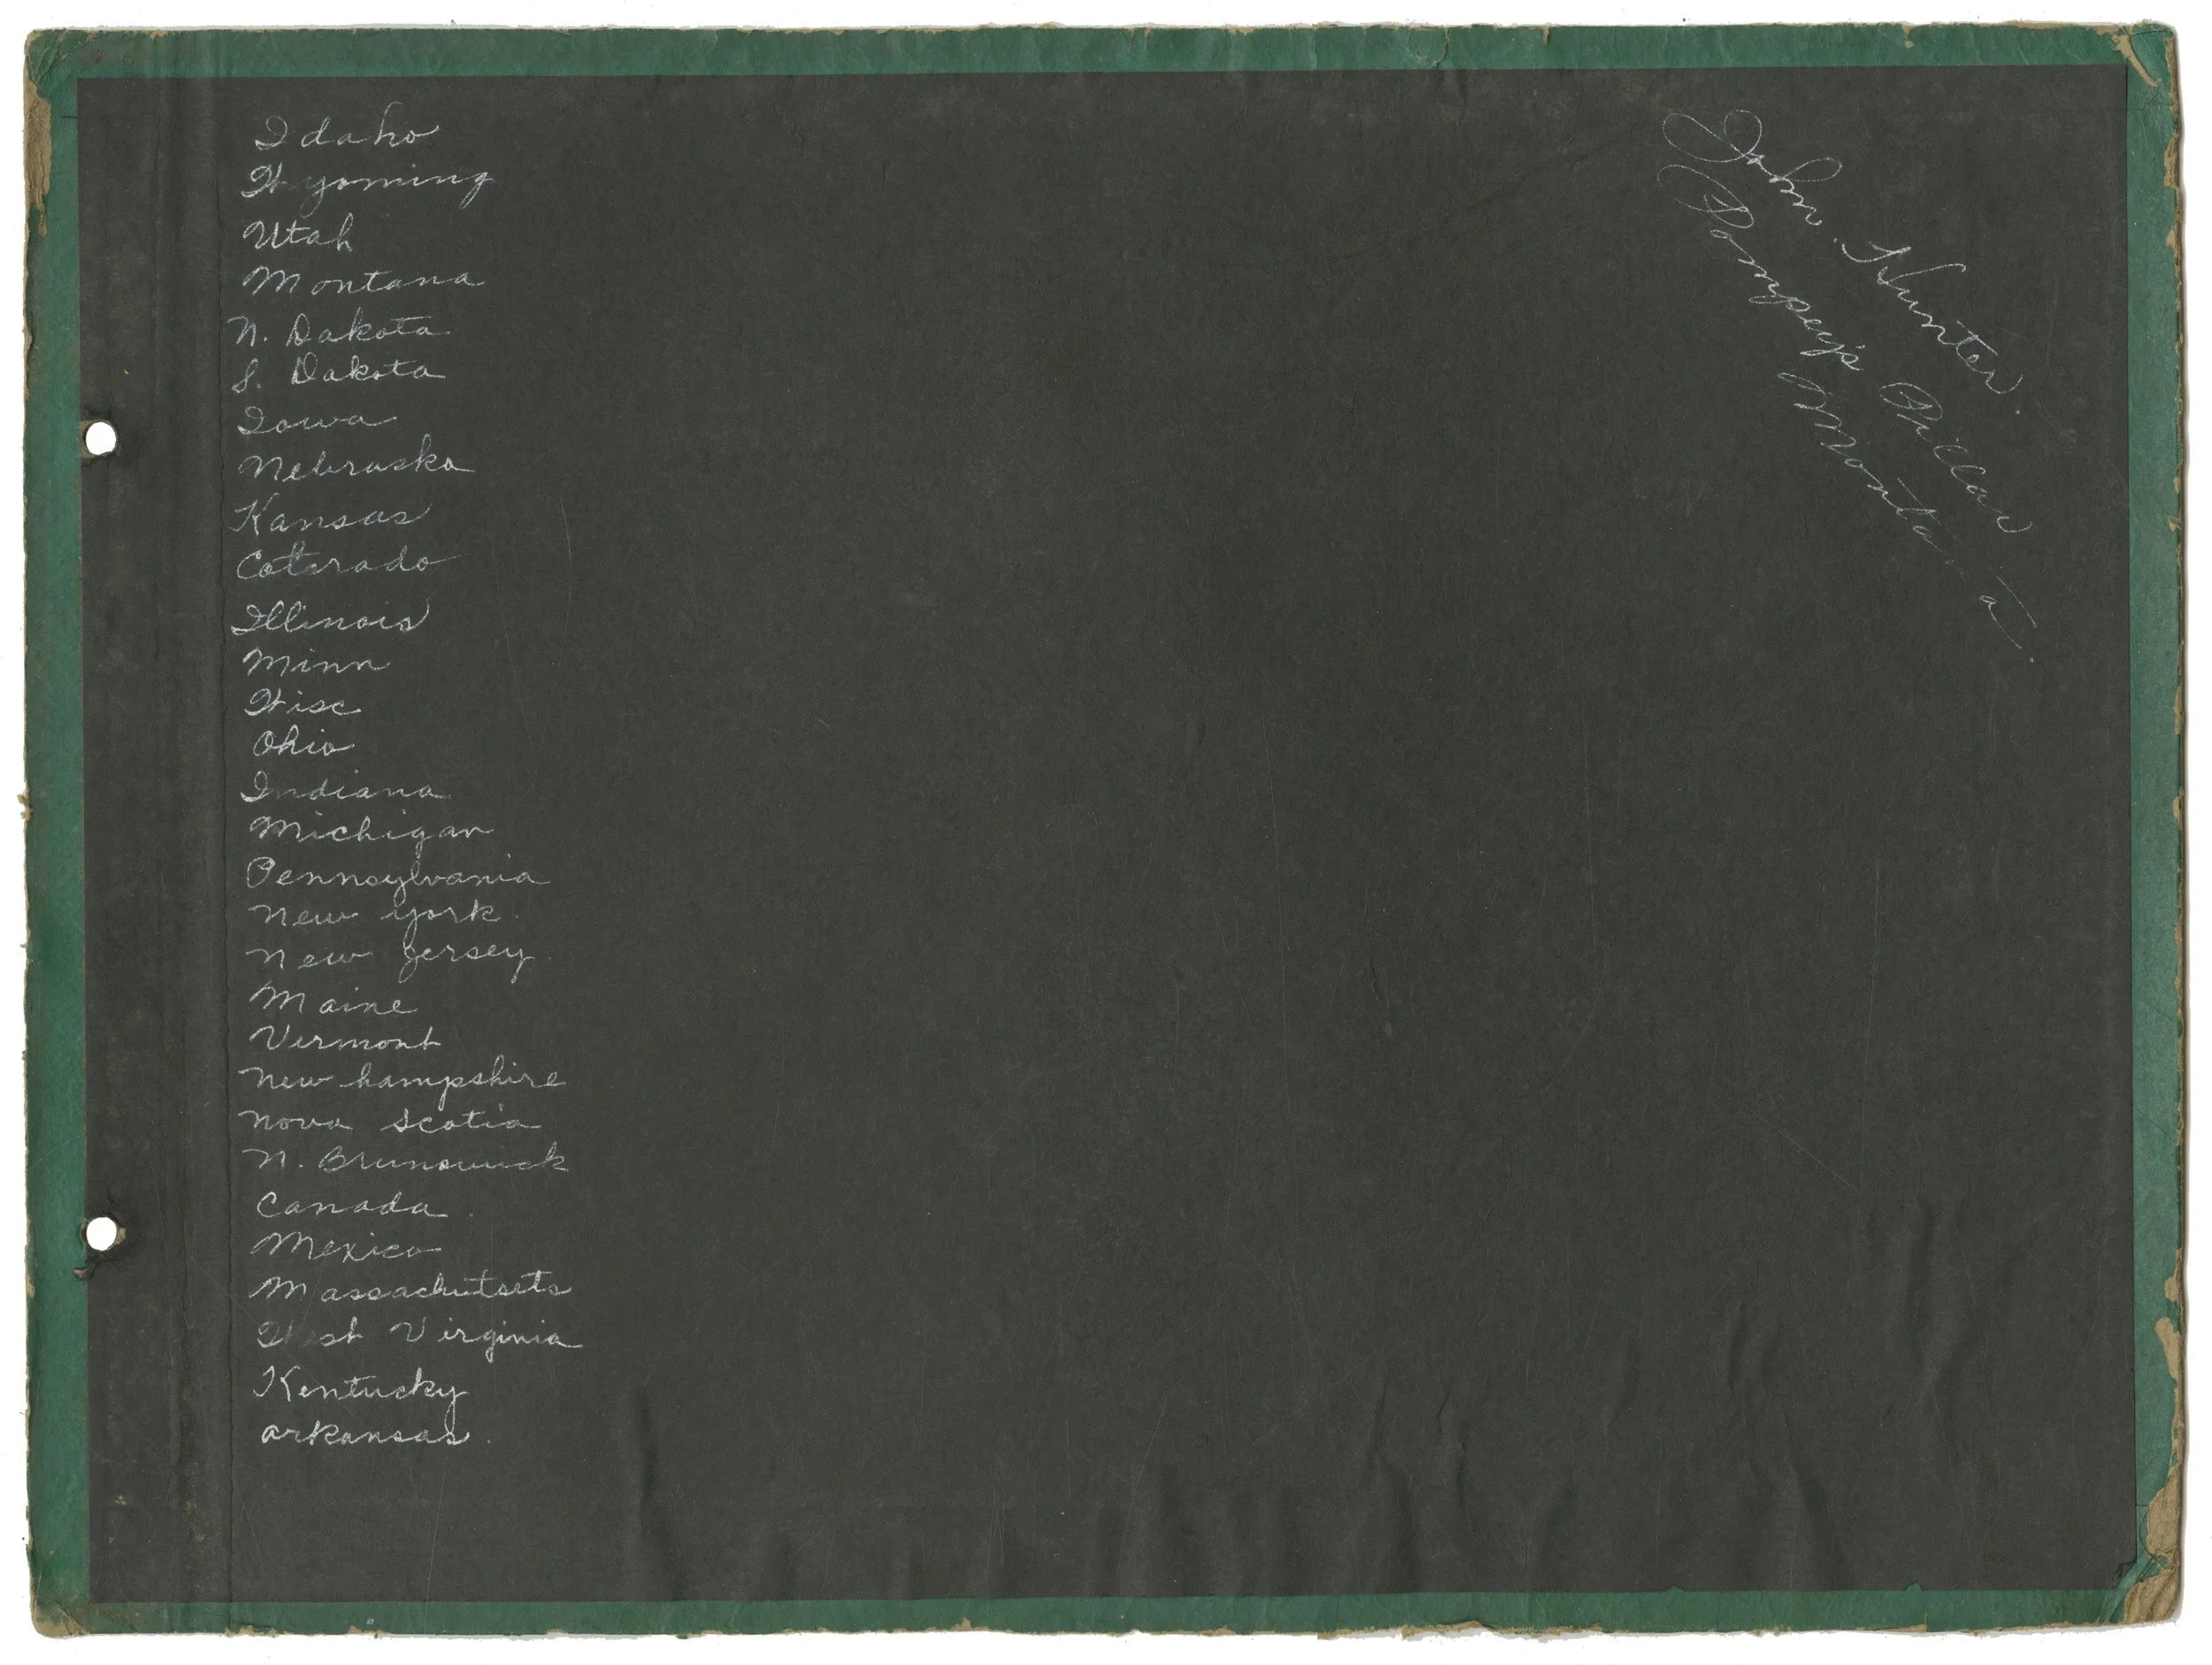 Idaho
Wyoming
Utah
Montana
N. Dakota
S. Dakota
Iowa
Nebraska
Kansas
Colorado
Illinois
Minn
Wisc
Ohio
Indiana
Michigan
Pennsylvania
New York.
New Jersey.
Maine
Vermont
New hampshire
Nova Scotia
N. Brunswick
Canada.
Mexico
Massachutsets
West Virginia
Kentucky
arkansas.
John. Hunter.
Pompey's Pillar
Montana.